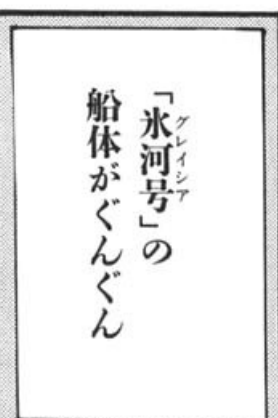 「氷河号」の
グレイシア
船体がぐんぐん